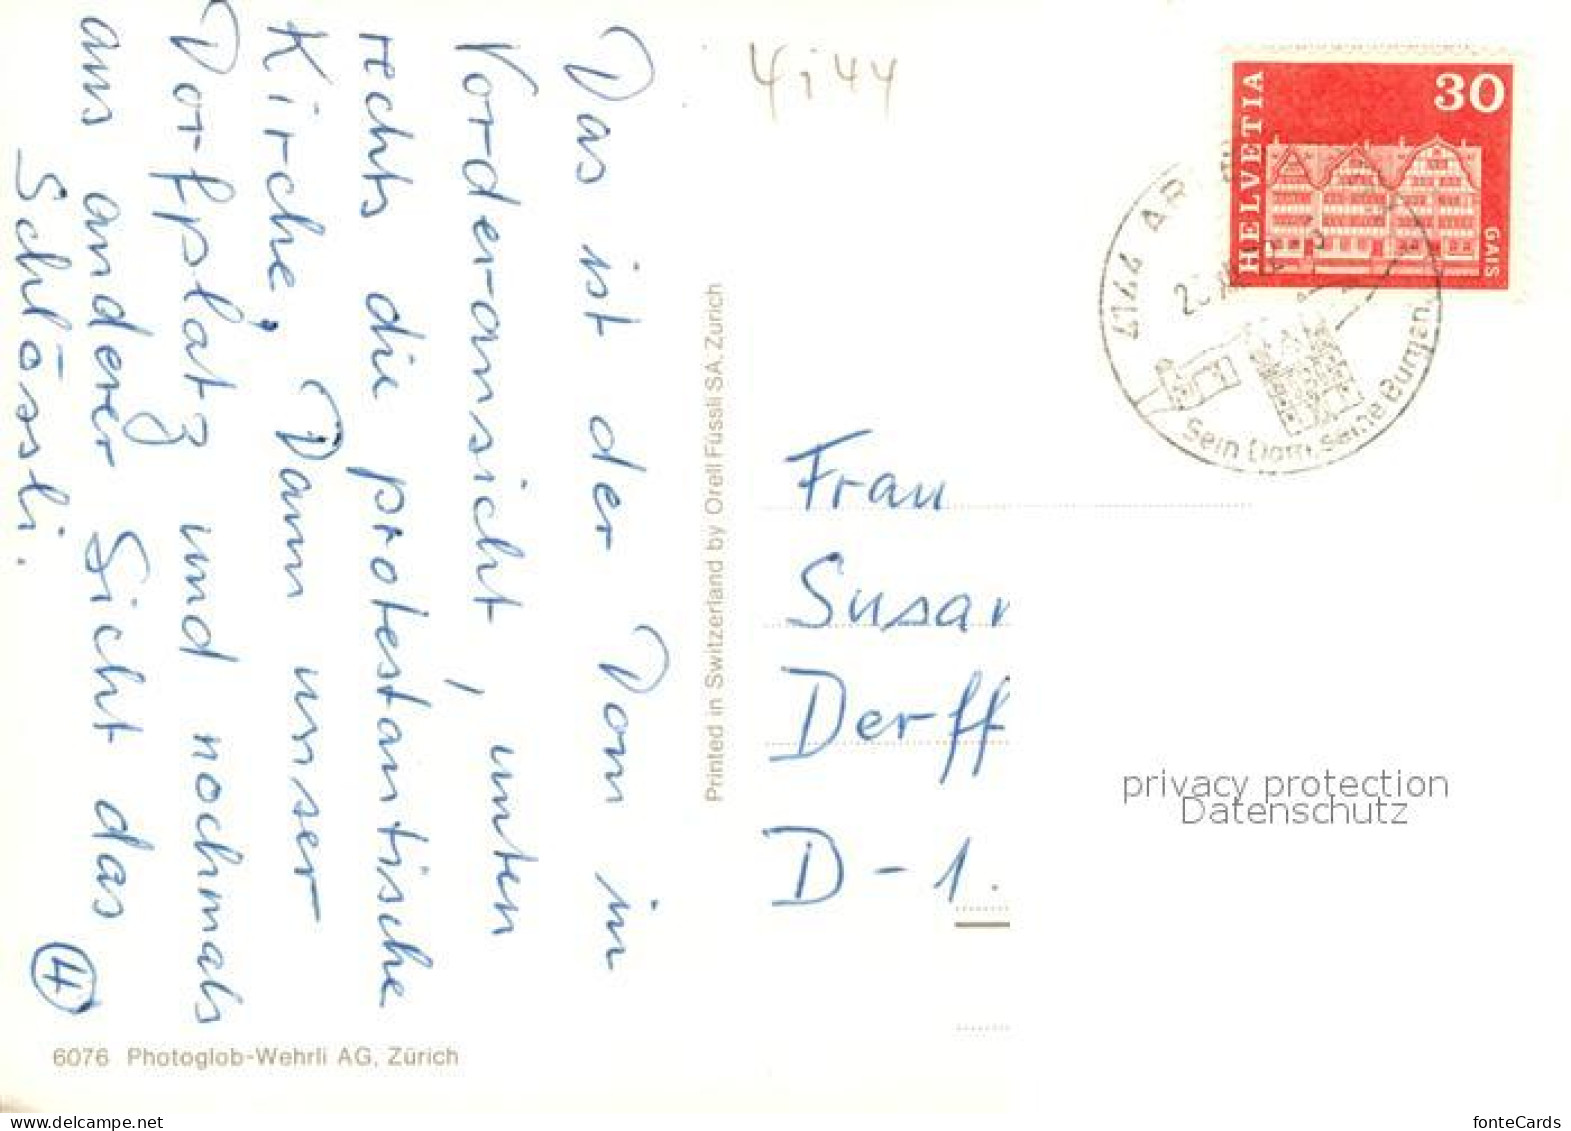 Das ist der Dom in
Vorderansicht, unten
rechts die protestantische
Kirche, Dann unser
Dorfplatz und nochmals
aus anderer Sicht das
Schlössli.
4
6076 Photoglob-Wehrli AG, Zürich
Printed in Switzerland by Orell Füssli SA. Zürich
4144
HELVETIA
30
GAIS
4144 AR
Sein Dom. Seine Burgen
Frau
Susan
Derff
D-1.
privacy protection
Datenschutz
www.delcampe.net
fonteCards